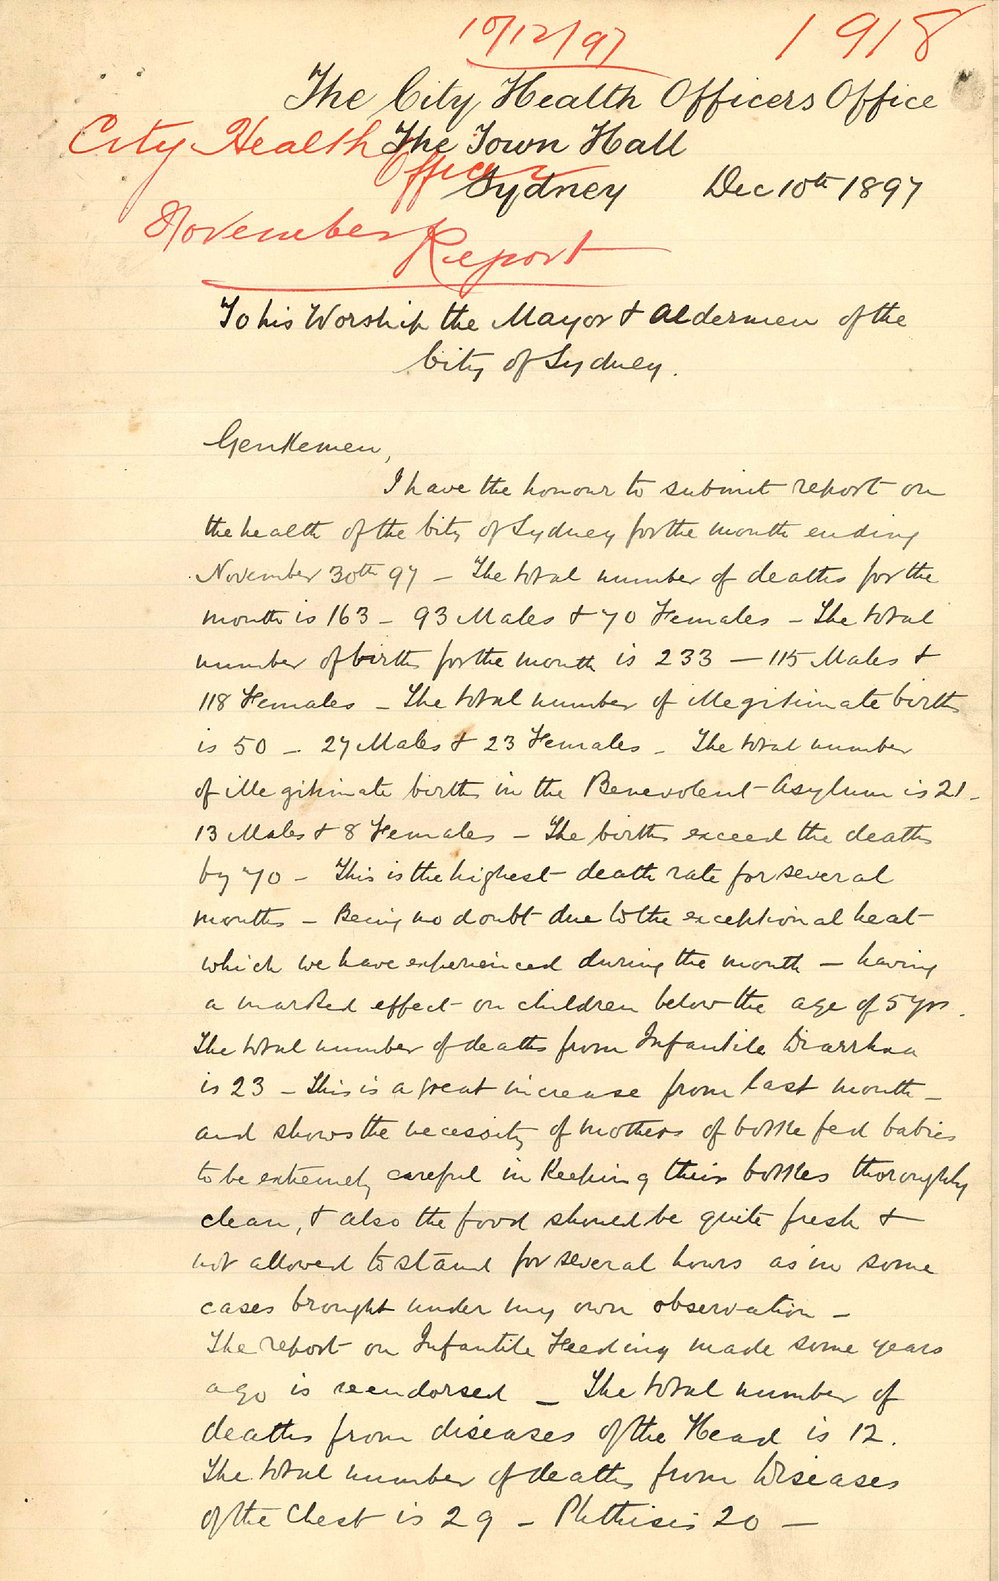 10/12/97 1918
The City Health Officers Office
City Health Officer
The Town Hall
Sydney Dec 10th 1897
November Report
To his Worship the Mayor & Aldermen of the
City of Sydney.
Gentlemen,
I have the honour to submit report on
the health of the City of Sydney for the month ending
November 30th 97 – The total number of deaths for the
month is 163 – 93 Males & 70 Females – The total
number of births for the month is 233 – 115 Males &
118 Females – The total number of illegitimate births
is 50 – 27 Males & 23 Females – The total number
of illegitimate births in the Benevolent Asylum is 21 –
13 Males & 8 Females – The births exceed the deaths
by 70 – This is the highest death rate for several
months – Being no doubt due to the exceptional heat
which we have experienced during the month – having
a marked effect on children below the age of 5 yrs.
The total number of deaths from Infantile Diarrhœa
is 23 – This is a great increase from last month –
and shows the necessity of mothers of bottle fed babies
to be extremely careful in keeping their bottles thoroughly
clean, & also the food should be quite fresh &
not allowed to stand for several hours as in some
cases brought under my own observation –
The report on Infantile Feeding made some years
ago is reendorsed – The total number of
deaths from diseases of the Head is 12.
The total number of deaths from Diseases
of the Chest is 29 – Phthisis 20 –